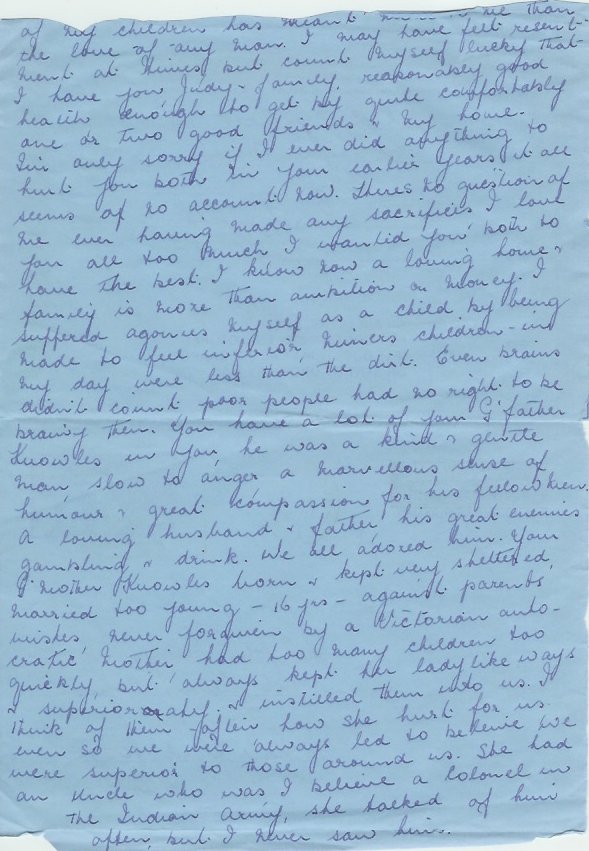 of my children has meant more to me than
the love of any man. I may have felt resent-
ment at times but count myself lucky that
I have you Judy & family, reasonably good
health enough to get by quite comfortably
one or two good friends & my home.
I'm only sorry if I ever did anything to
hurt you both in your earlier years it all
seems of no account now. There's no question of
me ever having made any sacrifices I love
you all too much I wanted you both to
have the best. I know now a loving home &
family is more than ambition or money. I
suffered agonies myself as a child by being
made to feel inferior, miners children - in
my day were less than the dirt. Even brains
didn't count poor people had no right to be
brainy then. You have a lot of your G'father
Knowles in you, he was a kind & gentle
man slow to anger a marvellous sense of
humour & great compassion for his fellow men.
A loving husband & father his great enemies
gambling & drink. We all adored him. Your
G'Mother Knowles born & kept very sheltered,
married too young - 16 yrs - against parents
wishes never forgiven by a Victorian auto-
cratic Mother had too many children too
quickly, but always kept her ladylike ways
& superiority & instilled them into us. I
think of them often how she hurt for us
even so we were always led to believe we
were superior to those around us. She had
an Uncle who was I believe a Colonel in
the Indian Army, she talked of him
often, but I never saw him.